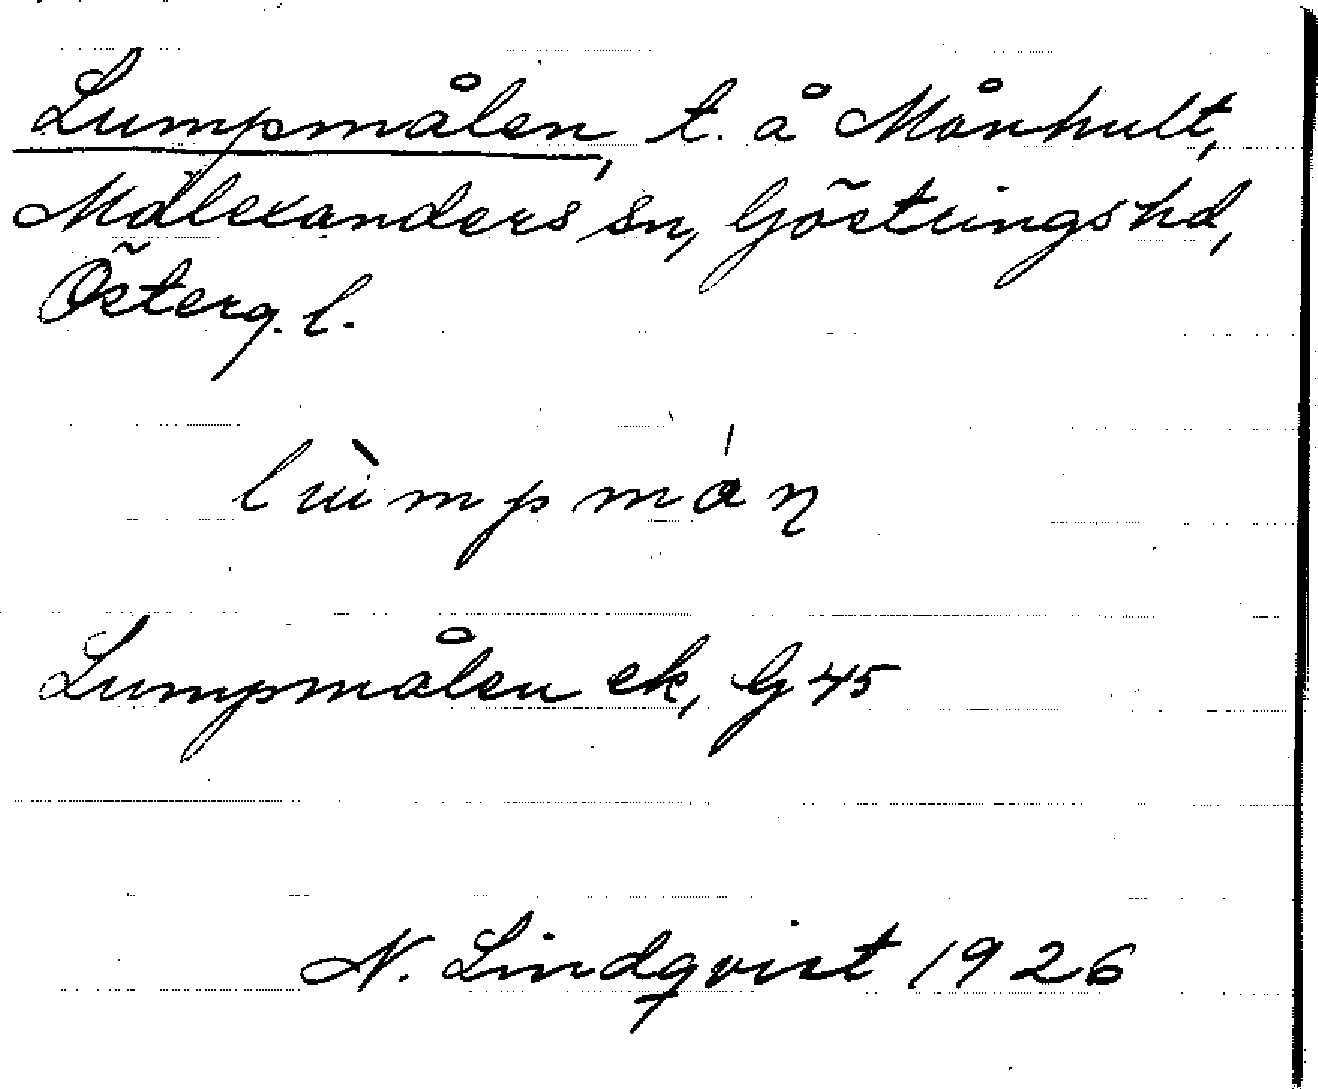 Lumpmålen, t. å Månhult,
Malexanders sn, Göstrings hd,
Österg. l.
lùmpmán
Lumpmålen ek, G 45
N. Lindqvist 1926